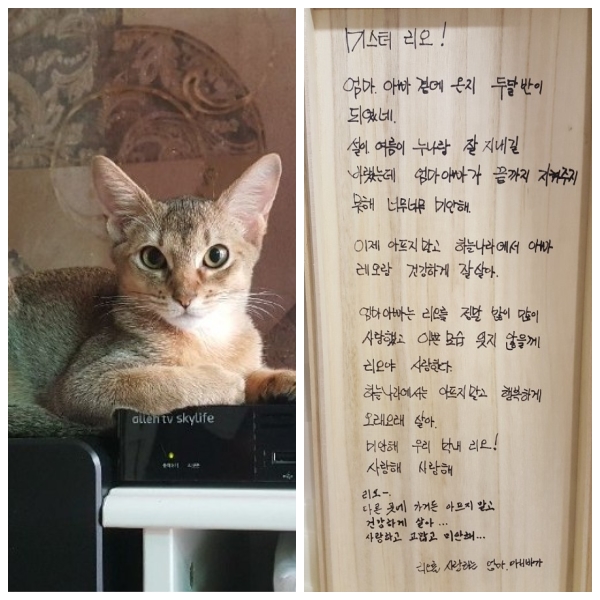 allen tv skylife
미스테 리오!
엄마. 아빠 곁에 온지 두달반이
되었네.
설이 여름이 누나랑 잘 지내길
바랬는데 엄마아빠가 끝까지 지켜주지
못해 너무너무 미안해.
이제 아프지말고 하늘나라에서 아빠
레오랑 건강하게 잘살아.
엄마아빠는 리오를 정말 많이 많이
사랑했고 이쁜모습 잊지 않을께
리오야 사랑한다.
하늘나라에서는 아프지말고 행복하게
오래오래 살아.
미안해 우리 막내 리오!
사랑해 사랑해
리오~.
다른 곳에 가거든 아프지 말고
건강하게 살아...
사랑하고 고맙고 미안해...
리오를 사랑하는 엄마.아빠가